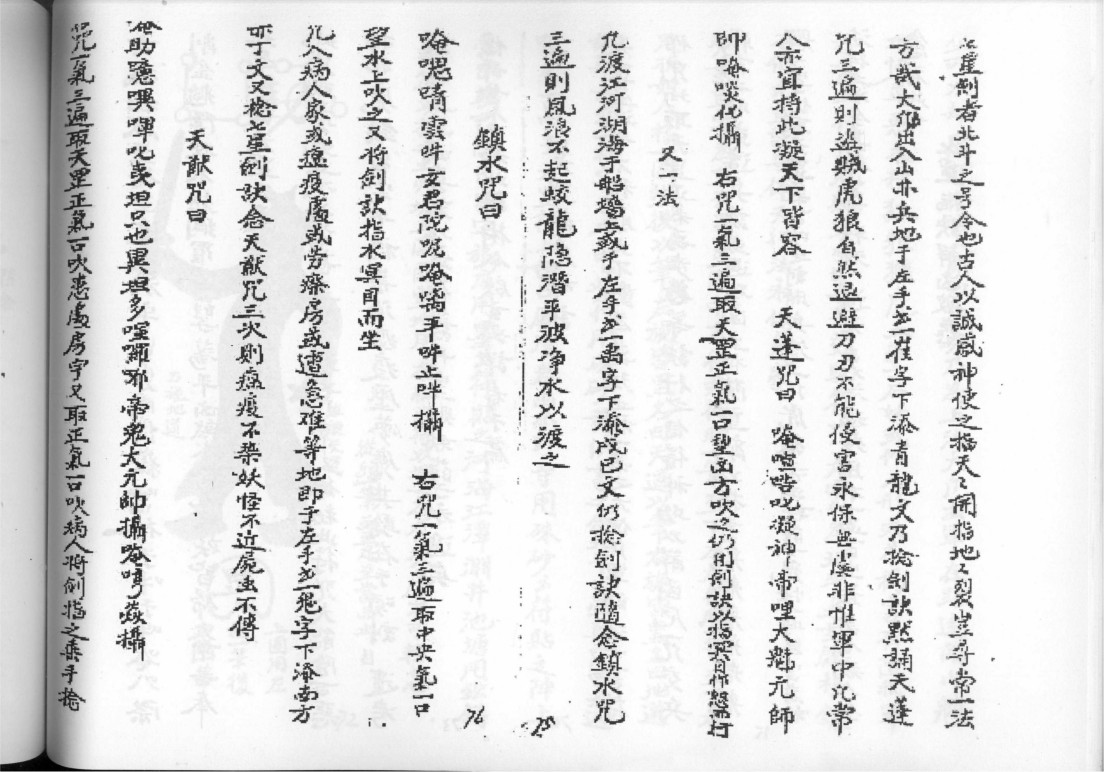 七星劍者北斗之号令也古人以誠感神使之指天々開指地々裂豈尋常一法
方或大作出入山林兵地于左手出一崔字下添青龍文乃捻劍訣默誦天蓬
咒三遍則盜賊虎狼自然退避刀刃不能侵害永保無虞非惟軍中凡常
人亦宜持此凝天下皆容 天蓬咒曰 唵 叱凝神帝哩大魁元帥
帥唵啖化攝 右咒一氣三遍取天罡正氣一口望 方吹之仍用劍訣以指冥目作怒而行
又一法
凡渡江河湖海于船塲或于左手出一禹字下添戊巳文仍捻劍訣隨念鎮水咒
三遍則風浪不起蛟龍隐潛平波净水以渡之
75
76
鎮水咒曰
唵 雲吽玄君陀 唵 平吽止吽攝 右咒一氣三遍取中央氣一口
望水上吹之又將劍訣指水冥目而坐
凡入病人家或瘟疫處或劳瘵房或遭急难等地即于左手出一鬼字下添南方
丙丁文又捻七星劍訣念天猷咒三次則瘟疫不染妖怪不近屍虫不傳
天猷咒曰
唵助 叱 坦只也異坦多 囉邪帝鬼大元帥攝唵 攝
咒一氣三遍取天罡正氣一口吹患處房宇又取正氣一口吹病人將劍指之 手捻